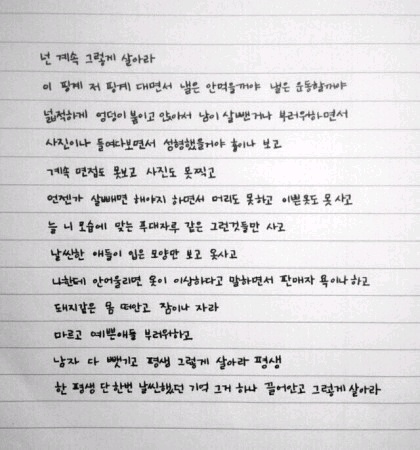 넌 계속 그렇게 살아라
이 핑계 저 핑계 대면서 낼은 안먹을꺼야 낼은 운동할꺼야
넓적하게 엉덩이 붙이고 앉아서 남이 살뺐거나 부러워하면서
사진이나 들여다보면서 성형했을거야 흉이나 보고
계속 면접도 못보고 사진도 못찍고
언젠가 살빼면 해야지 하면서 머리도 못하고 이쁜옷도 못사고
늘 니 모습에 맞는 푸대자루 같은 그런것들만 사고
날씬한 애들이 입은 모양만 보고 옷사고
나한테 안어울리면 옷이 이상하다고 말하면서 판매자 욕이나 하고
돼지같은 몸 떠안고 잠이나 자라
마르고 예쁜애들 부러워하고
남자 다 뺏기고 평생 그렇게 살아라 평생
한 평생 단 한번 날씬했던 기억 그거 하나 끌어안고 그렇게 살아라